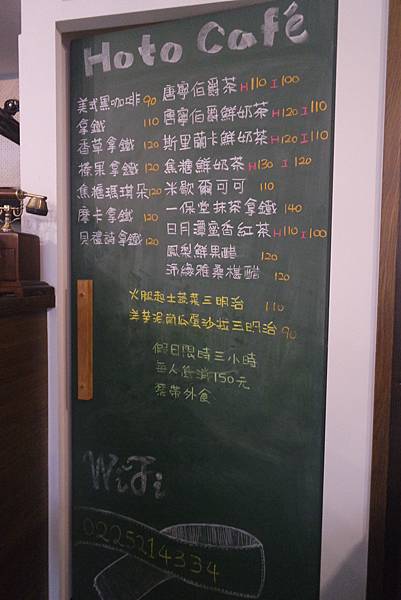 Hoto Café
美式黑咖啡 90
拿鐵 110
香草拿鐵 120
榛果拿鐵 120
焦糖瑪琪朵 120
摩卡拿鐵 120
貝禮詩拿鐵 120
唐寧伯爵茶 H110 I100
唐寧伯爵鮮奶茶 H120 I110
斯里蘭卡鮮奶茶 H120 I110
焦糖鮮奶茶 H130 I120
米歇爾可可 110
一保堂抹茶拿鐵 140
日月潭蜜香紅茶 H110 I100
鳳梨鮮果醋 120
淨緣雅桑椹醋 120
火腿起士蔬菜三明治 110
洋芋泥南瓜蛋沙拉三明治 90
假日限時三小時
每人低消150元
禁帶外食
WiFi
0225214334